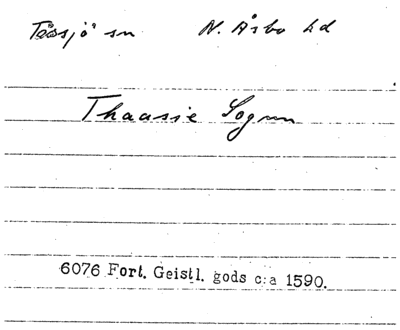 Tåssjö sn N. Åsbo hd
Thaasie Sognn
6076 Fort. Geistl. gods c:a 1590.